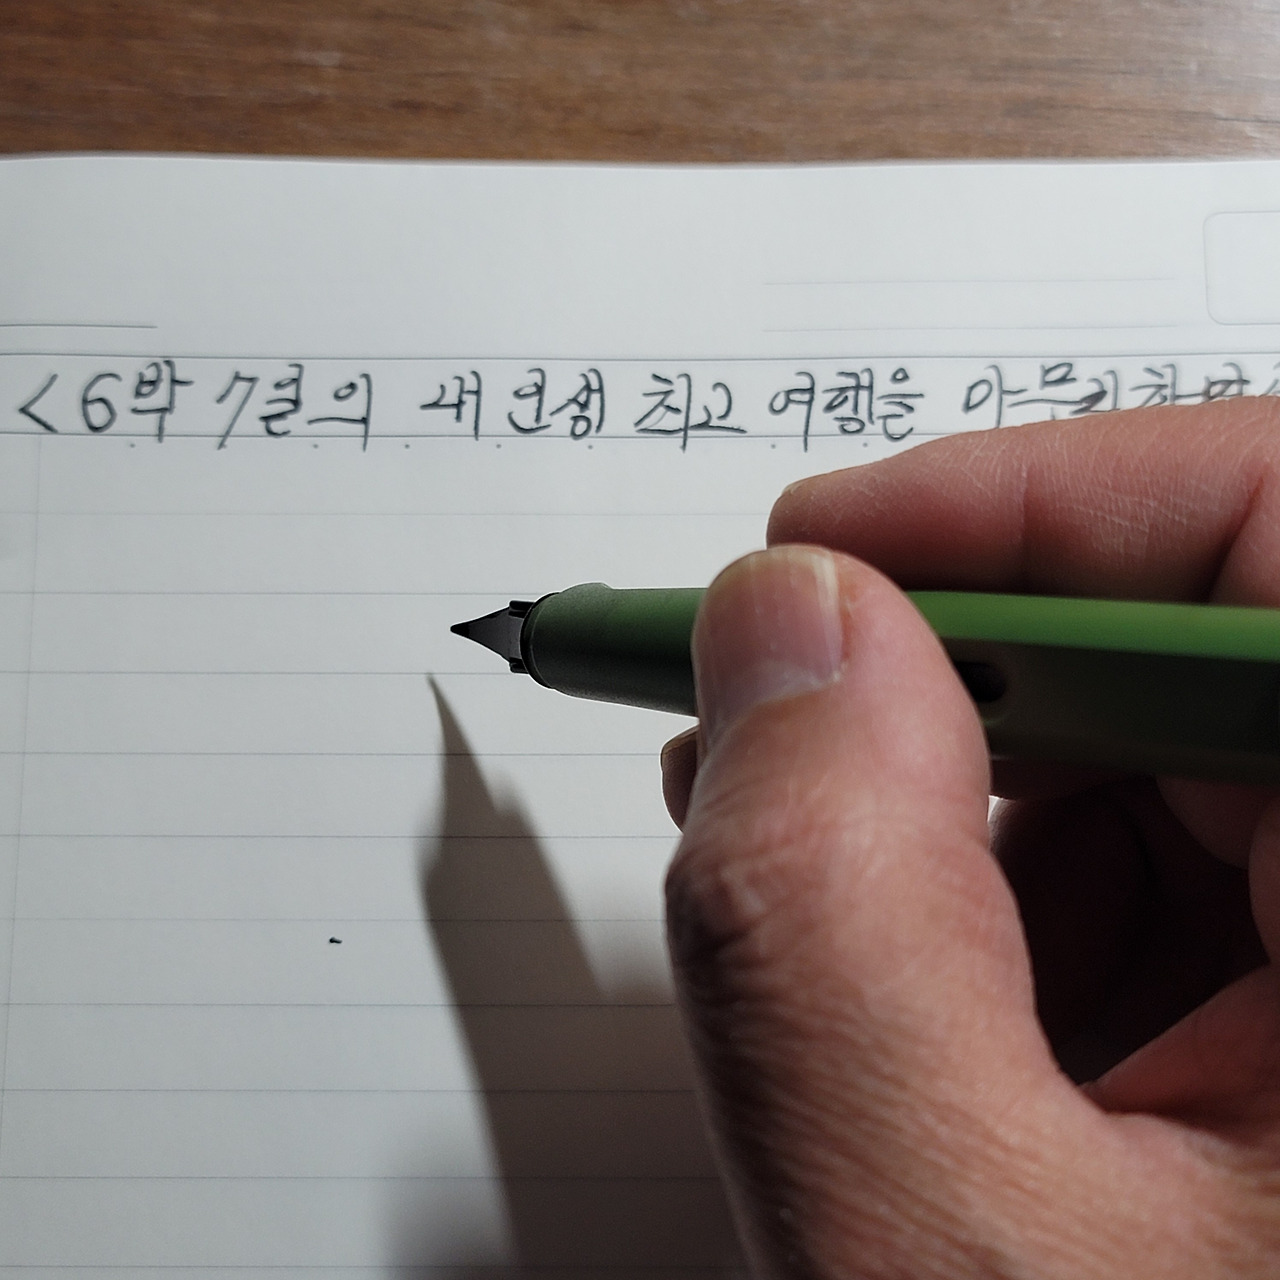 <6박 7일의 내 인생 최고 여행을 마무리하면서